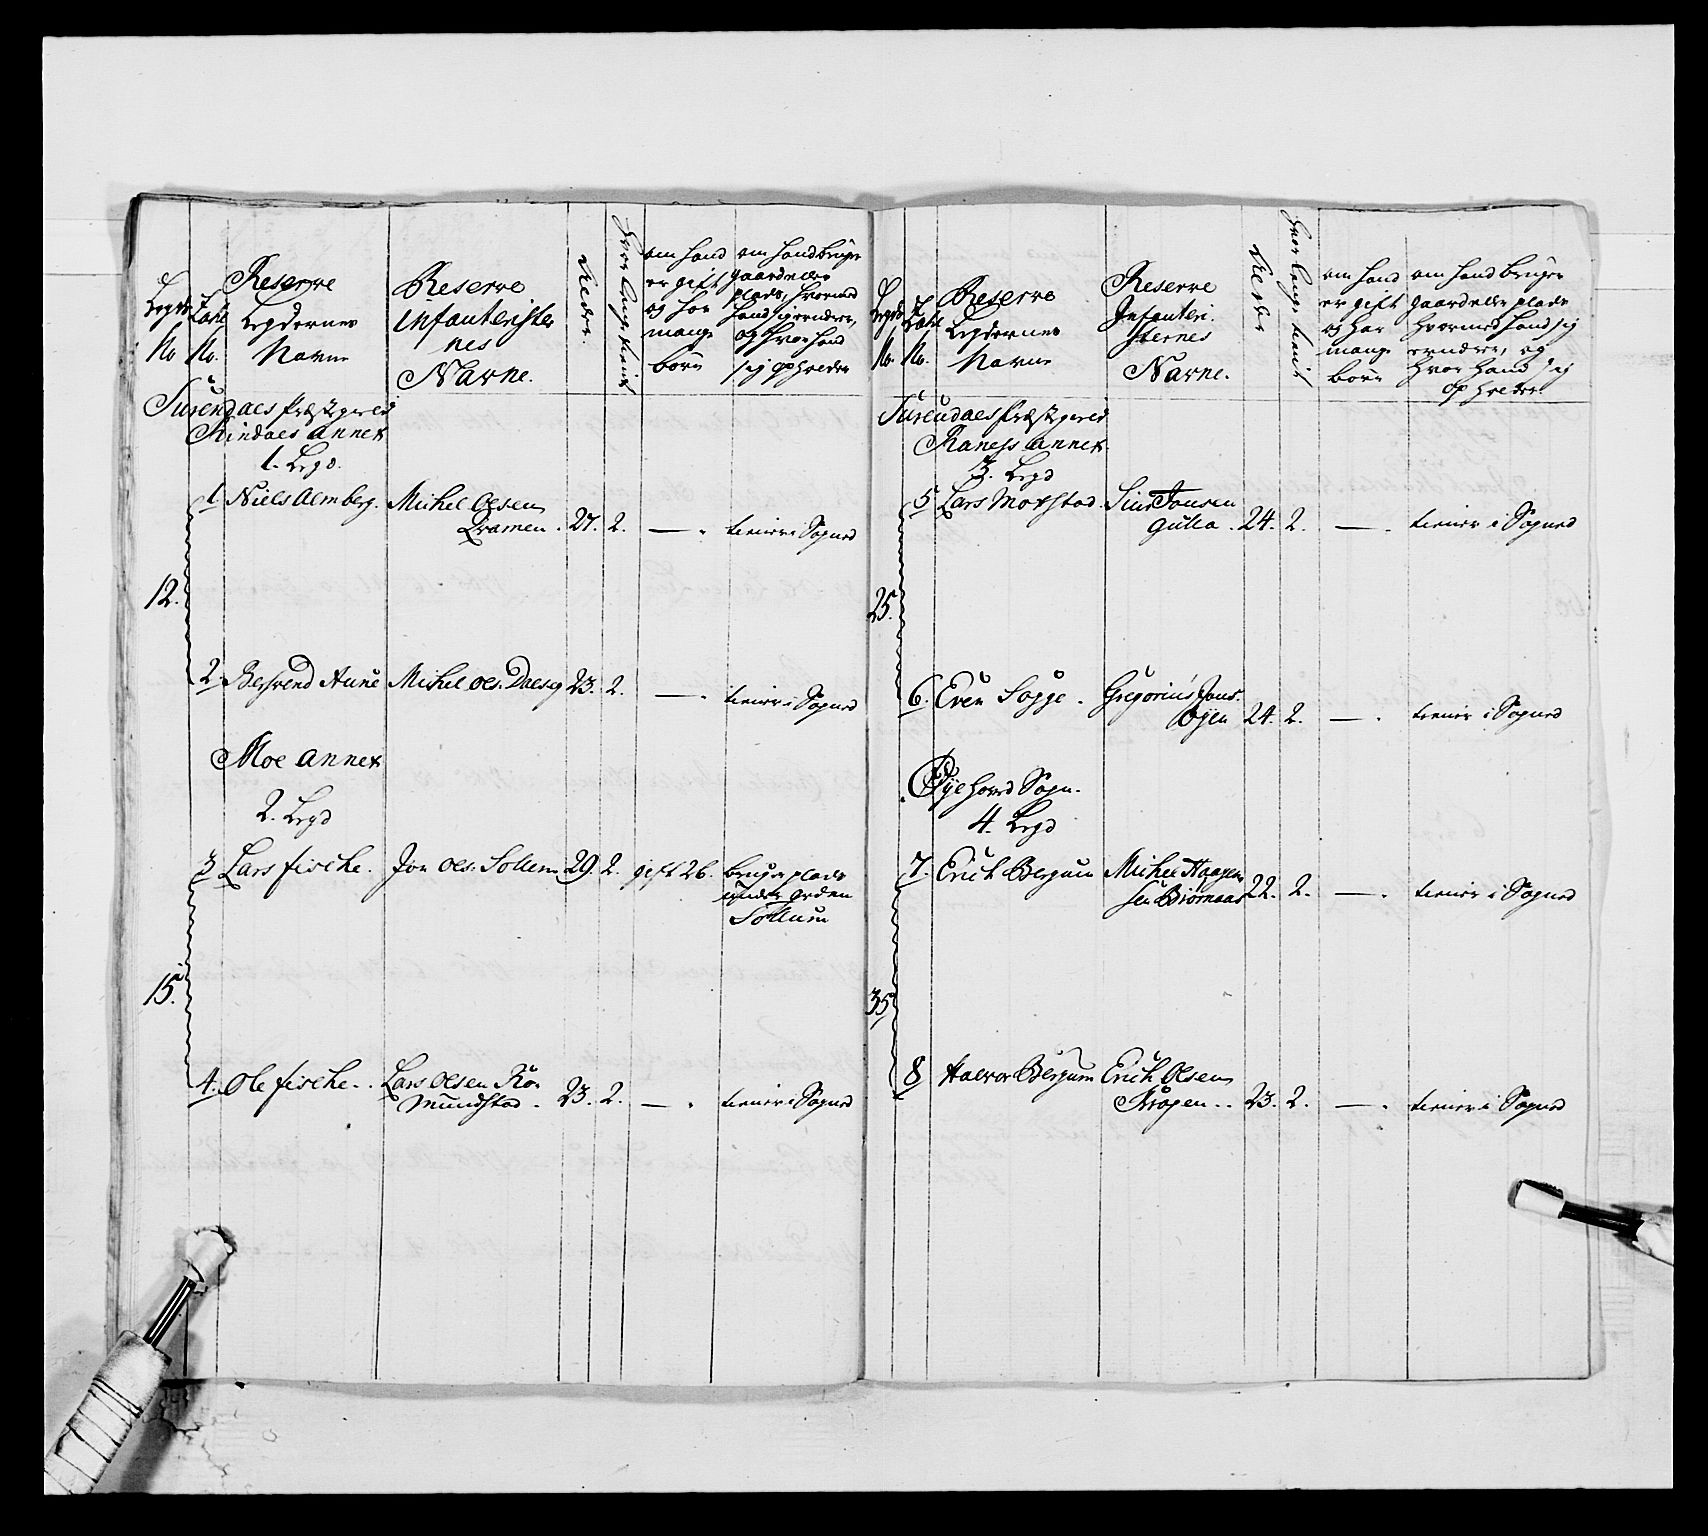 Legds No
Tahl No.
Reserve
Legdernes
Navne
Reserve
infanterister
nes
Navne.
Alder.
hvor længe tient
om hand
er gift
og har
mange
børn
om hand bruger
gaard eller
plads, hvormed
hand sig ernærer,
og hvor hand
sig opholder
Surendals Præstegield
Rindals annex
1. Legd.
1. Niels Almberg. Michel Olsen
Qvamen. 27. 2. — . tiener i Sognet
12.
2. Berhrend Aune Michel Ols. Dalseg 23. 2. — . tiener i Sognet
Moe annex
2. Legd
3 Lars fiske. Jon Ols: Sollem 29. 2. gift 2 b. bruger plads
under gorden
Sollum
15.
4. Ole fiske. Lars Olsen Rø-
mundstad. 23. 2. — . tiener i Sognet
Legds No.
Tahl No.
Reserve
Legdernes
Navne
Reserve
Infanteri-
sternes
Navne.
Alder
hvor længe tient
om hand
er gift
og har
mange
børn
om hand bruger
gaard eller plads
hvormed hand sig
ernærer, og
hvor hand sig
opholder.
Surendals Præstegield
Ranes annex.
3. Legd
5 Lars Mogstad. Siur Jonsen
Gulla. 24. 2. — . tiener i Sognet
25.
6. Even Sogge. Gregorius Jons.
Øyen 24. 2. — . tiener i Sognet
Øye hoved Sogn.
4. Legd
7. Erich Bergum Michel Haagen-
sen Biørnaas 22. 2. — . tiener i Sognet
35
8 Halvor Bergum Erich Olsen
Krogen. 23. 2. — . tiener i Sognet